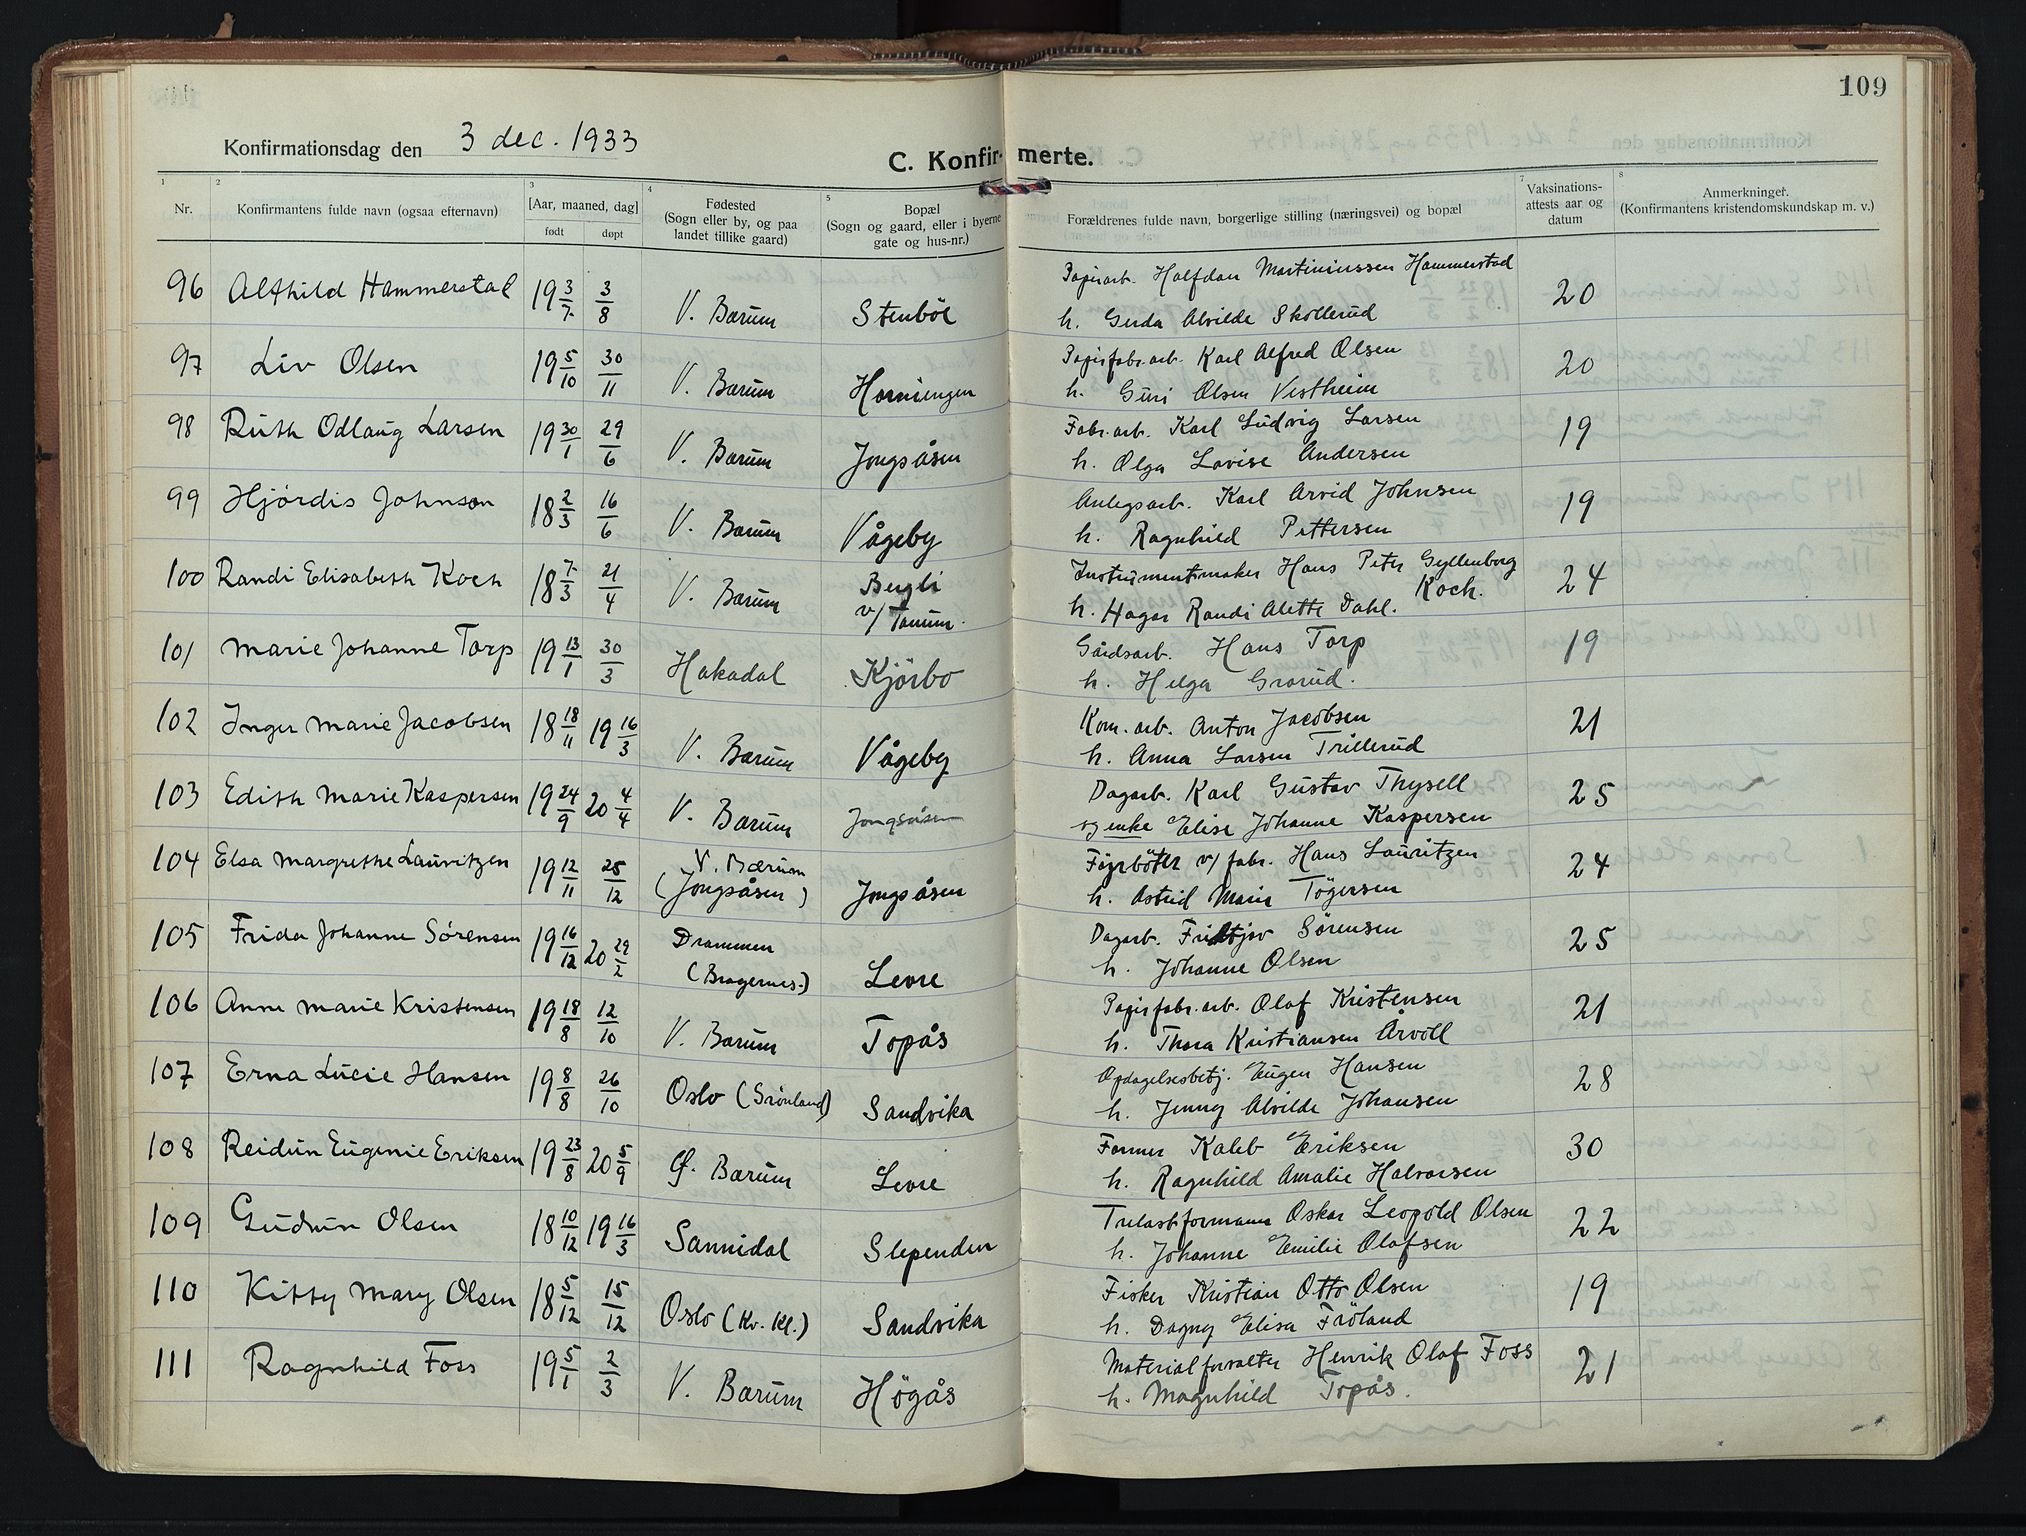 109
Konfirmationsdag den 3 dec. 1933
C. Konfir- merte.
1 2 3 4 5 7 8
Nr. Konfirmantens fulde navn (ogsaa efternavn) [Aar, maaned, dag] født døpt Fødested (Sogn eller by, og paa landet tillike gaard) Bopæl (Sogn og gaard, eller i byerne gate og hus-nr.) Forældrenes fulde navn, borgerlige stilling (næringsvei) og bopæl Vaksinations-attests aar og datum Anmerkninger. (Konfirmantens kristendomskundskap m. v.)
96 Alfhild Hammerstad 19 3/7 3/8 V. Bærum Stenböl Papirarb. Halfdan Martiniussen Hammerstad 20
h. Gerda Alvilde Skollerud
97 Liv Olsen 19 5/10 30/11 V. Bærum Horniengen Papirfabr.arb. Karl Alfred Olsen 20
h. Guri Olsen Vestheim
98 Ruth Odlaug Larsen 19 30/1 29/6 V. Bærum Jongsåsen Fabr.arb. Karl Ludvig Larsen 19
h. Olga Lovise Andersen
99 Hjördis Johnson 18 2/3 16/6 V. Bærum Vågeby Anlegsarb. Karl Arvid Johnsen 19
h. Ragnhild Pettersen
100 Randi Elisabeth Koch 18 7/3 21/4 V. Bærum Bergli v/ Tanum. Instrumentmaker Hans Peter Gyllenborg Koch. 24
h. Hagar Randi Alette Dahl.
101 Marie Johanne Torp 19 13/1 30/3 Hakadal Kjörbo Gårdsarb. Hans Torp 19
h. Helga Grorud.
102 Inger Marie Jacobsen 18 18/11 19 16/3 V. Bærum Vågeby Kom. arb. Anton Jacobsen 21
h. Anna Larsen Trillerud
103 Edith Marie Kaspersen 19 24/9 20 4/4 V. Bærum Jongsåsen Dagarb. Karl Gustav Thysell 25
og enke Elise Johanne Kaspersen
104 Elsa Margrethe Lauritzen 19 12/11 25/12 V. Bærum (Jongsåsen) Jongsåsen Fyrböter v/ fabr. Hans Lauritzen 24
h. Astrid Marie Tögersen
105 Frida Johanne Sörensen 19 16/12 20 29/2 Drammen (Bragernes.) Levre Dagarb. Fridtjov Sørensen 25
h. Johanne Olsen
106 Anne Marie Kristensen 19 18/8 12/10 V. Bærum Topås Papirfabr.arb. Olaf Kristensen 21
h. Thora Kristiansen Årvoll
107 Erna Lucie Hansen 19 8/8 26/10 Oslo (Grönland) Sandvika Opdagelsesbetj. Eugen Hansen 28
h. Jenny Alvilde Johansen
108 Reidun Eugenie Eriksen 19 23/8 20 5/9 Ø. Bærum Levre Former Kaleb Eriksen 30
h. Ragnhild Amalie Halvorsen
109 Gudrun Olsen 18 10/12 19 16/3 Sannidal Slependen Trelastformann Oskar Leopold Olsen 22
h. Johanne Emilie Olafsen
110 Kitty Mary Olsen 18 5/12 15/12 Oslo (Kv. Kl.) Sandvika Fisker Kristian Otto Olsen 19
h. Dagny Elisa Fröland
111 Ragnhild Foss 19 5/1 2/3 V. Bærum Högås Materialforvalter Henrik Olaf Foss 21
h. Magnhild Topås.